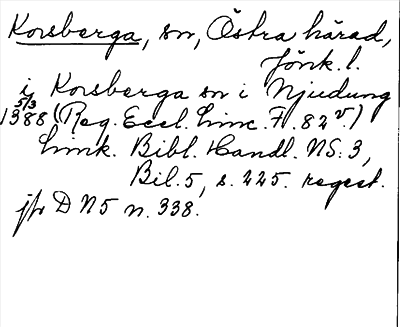 Korsberga, sn, Östra härad,
Jönk. l.
i Korsberga sn i Njudung
5/3
1388 (Reg. Eccl. Linc. F. 82 v.)
Link. Bibl. Handl. NS. 3,
Bil. 5, s. 225. regest.
jfr DN 5 n. 338.